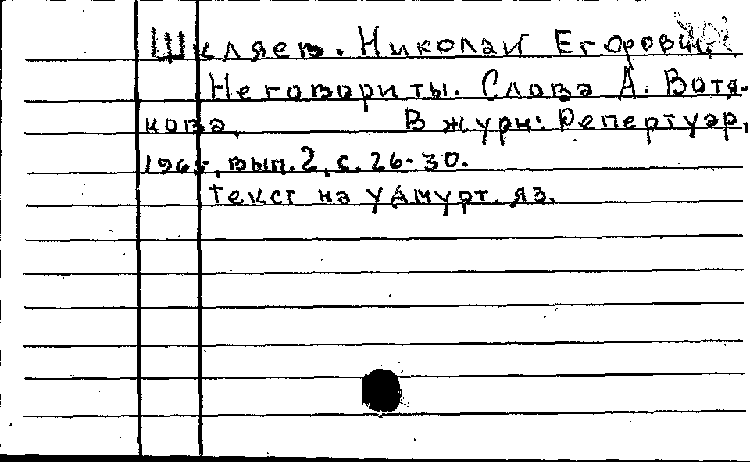 Шкляев. Николай Егорович.
Не говори ты. Слова А. Вотя-
кова. В журн: Репертуар,
1965, вып. 2, с. 26-30.
Текст на удмурт. яз.